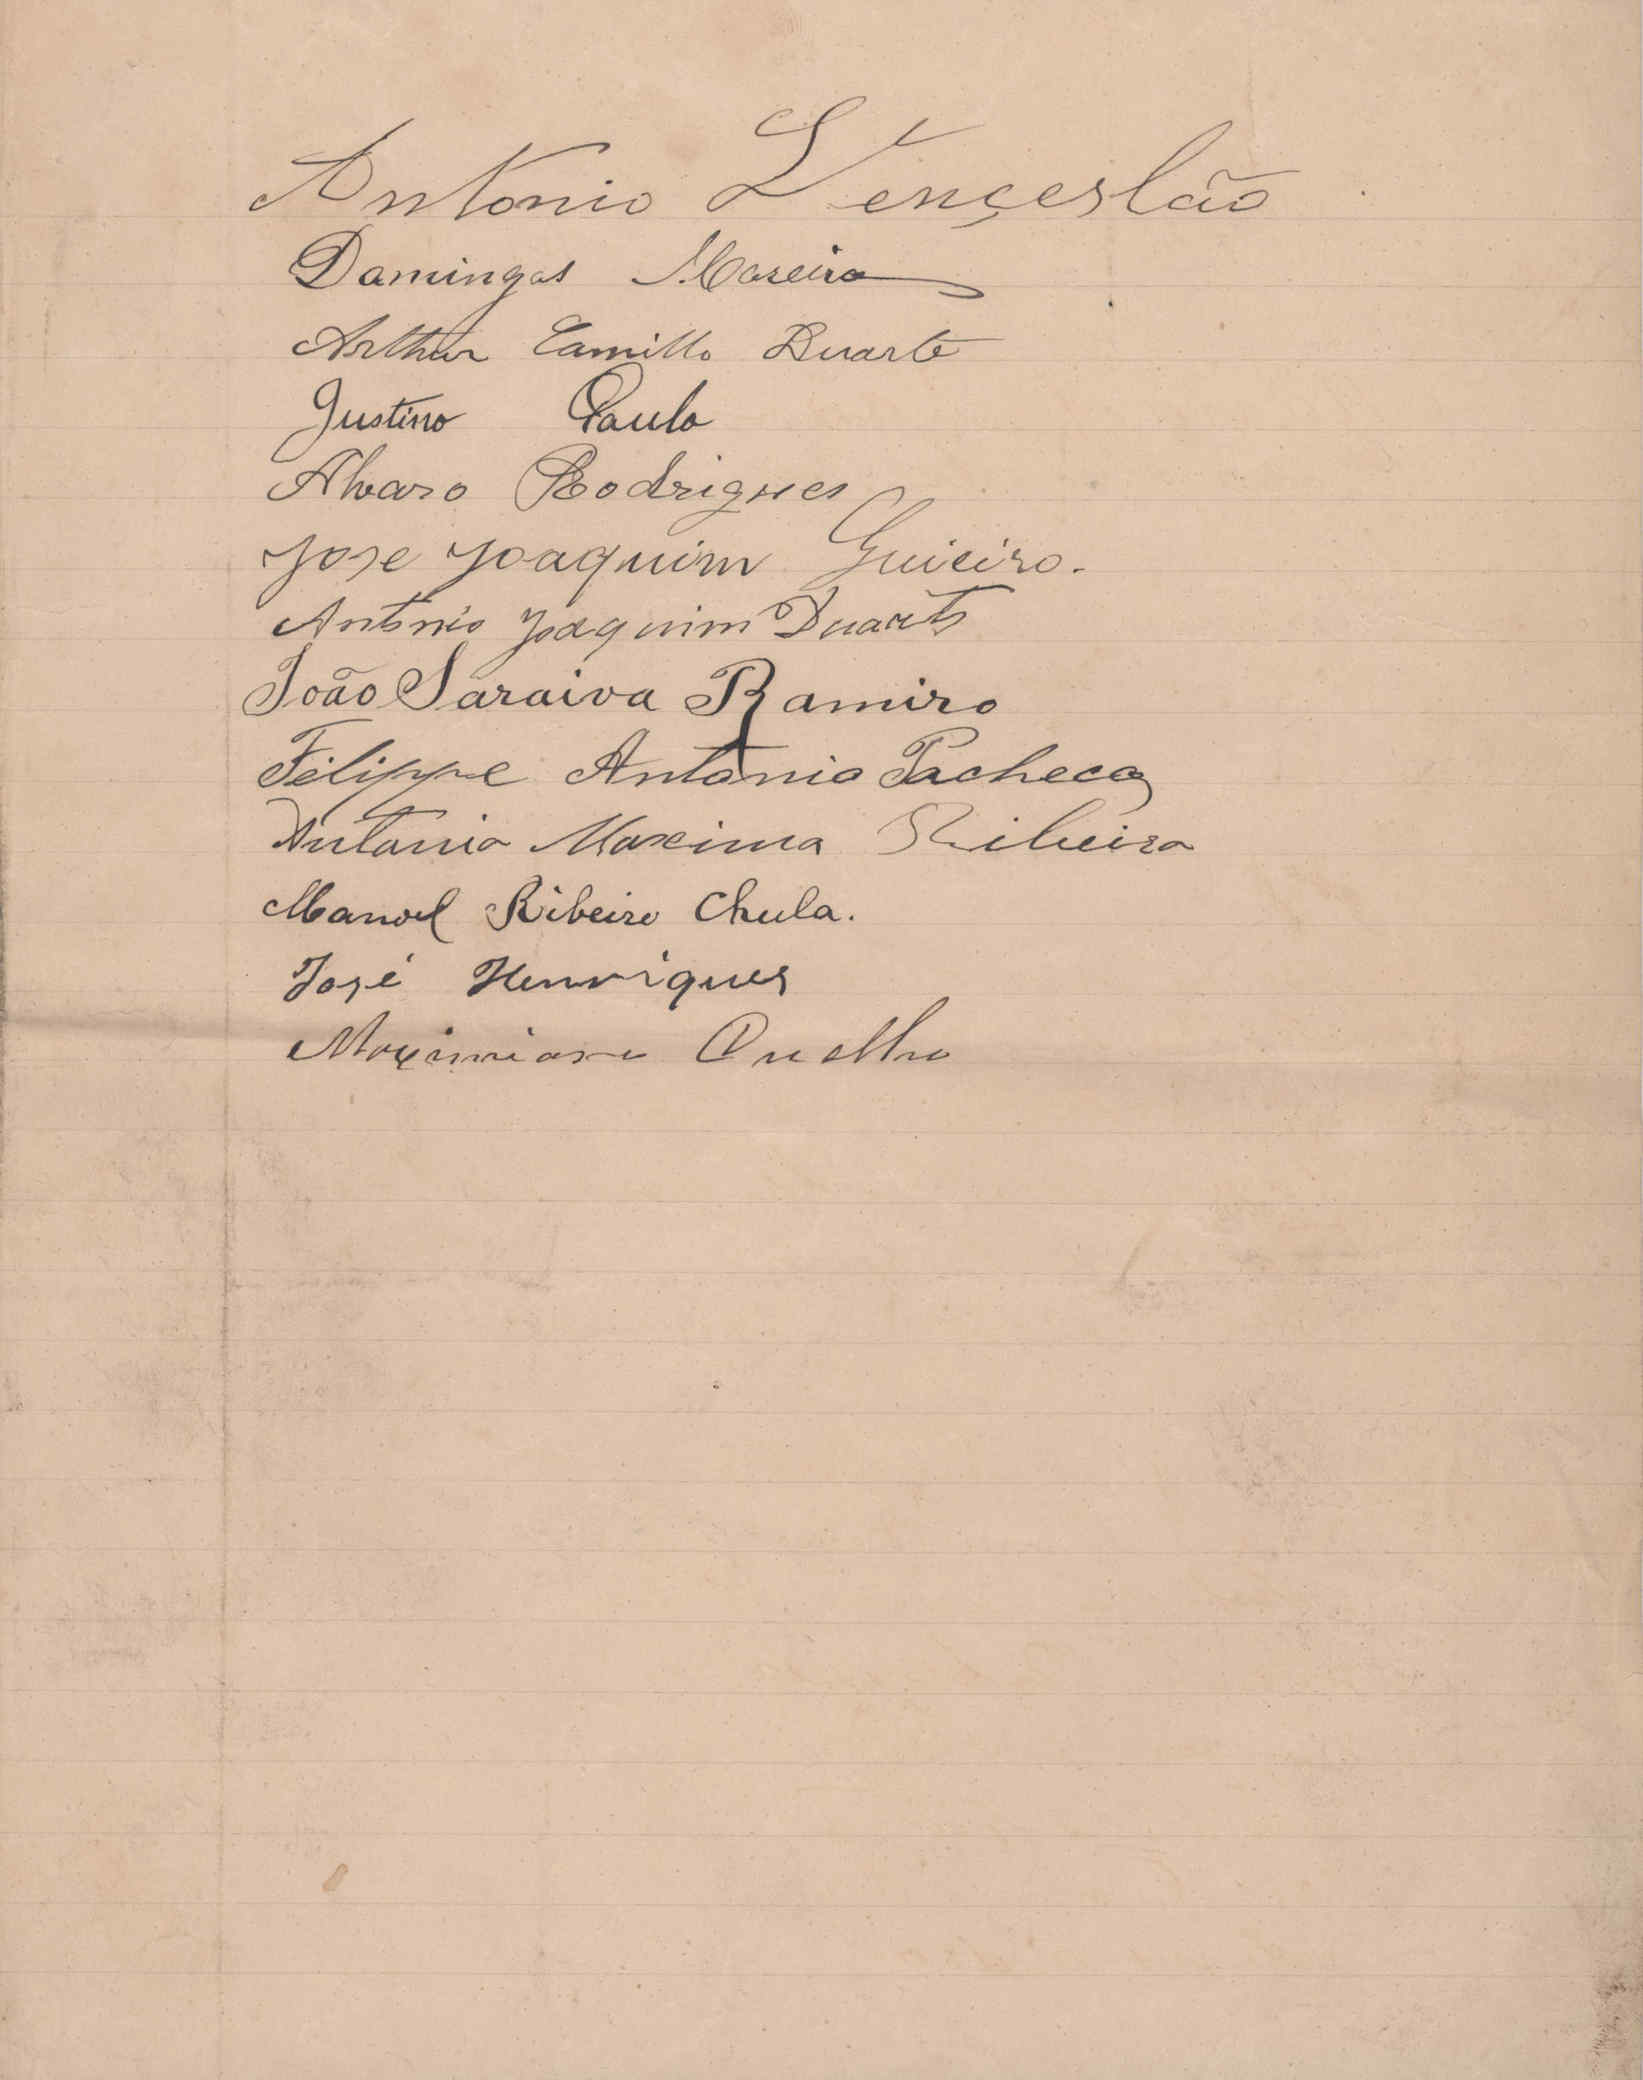 Antonio Vençeslão
Domingos Moreira
Arthur Camillo Duarte
Justino Paulo
Alvaro Rodrigues
Jose Joaquim Guieiro.
Antonio Joaquim Duarte
João Saraiva Ramiro
Felippe Antonio Pacheco
Antonio Maximo Ribeiro
Manoel Ribeiro Chula.
José Henriques
Maximiano